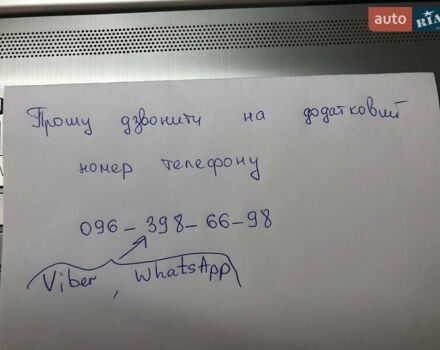 auto RIA
Прошу дзвонити на додатковий
номер телефону
096-398-66-98
Viber, WhatsApp